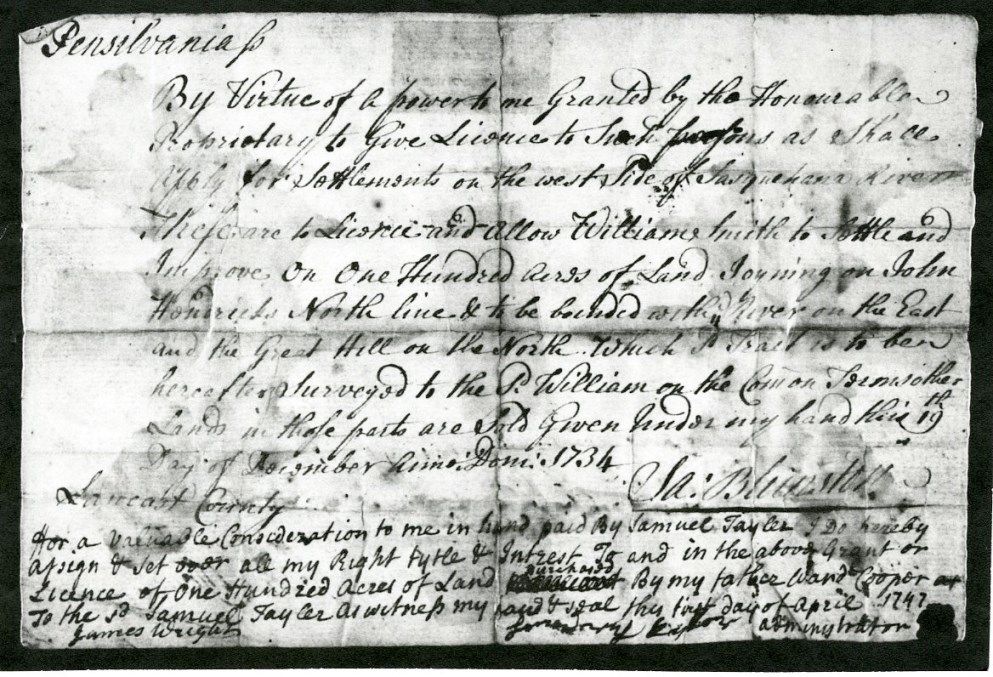 Pensilvania ss
By Virtue of a power to me Granted by the Honourable
Proprietary to Give Licence to Such persons as Shall
Apply for Settlements on the west Side of Susquehana River
These are to Licence and Allow William Smith to Settle and
Improve On One Hundred Acres of Land Joyning on John
Hendricks North line & to be bounded with ye River on the East
and the Great Hill on the North. Which sd Tract is to be
hereafter Surveyed to the sd William on the Comon Terms other
Lands in those parts are Sold Given Under my hand this 19th
Day of December Anno: Dom: 1734
Sa: Blunston
Lancast County
For a valuable Consideration to me in hand paid By Samuel Tayler I Do hereby
Assign & set over all my Right tytle & Intrest To and in the above Grant or
Licence of One Hundred Acres of Land purchased By my father Cooper
To the sd Samuel Tayler As witness my hand & seal this first day of April 1747
James Wright administrator